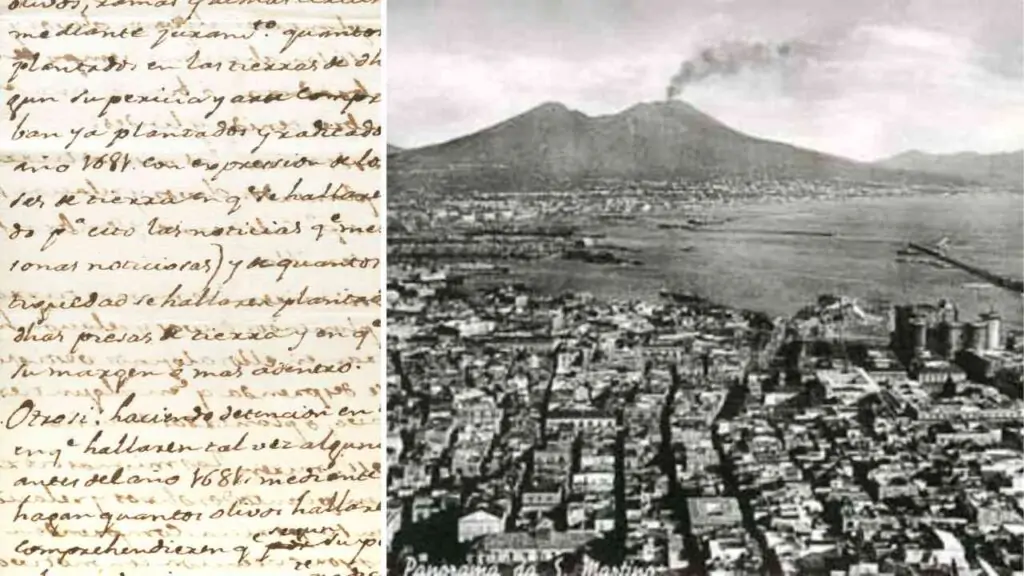 olivos, ramas y
mediante juramto quantos
plantados en las tierras de dh
gun su pericia y arte compr
ban ya plantados y radicado
año 1681. con expression de lo
ses de tierra en qe se hallare
do pa esto las noticias qe me
sonas noticiosas) y de quantos
se hallaren planta
dhas presas de tierra y en qe
su margen o mas adentro.
Otrosi: haciendo detencion en
en qe hallaren tal vez algun
antes del año 1681. mediente
hagan quantos olivos hallare
segun
comprehendieren qe por su p
Panorama da S. Martino